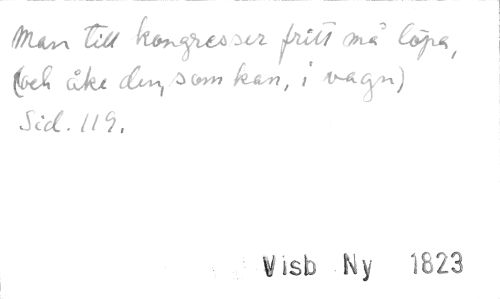 Man till kongresser fritt må löpa,
(och åke den, som kan, i vagn)
Sid. 119.
Visb Ny 1823